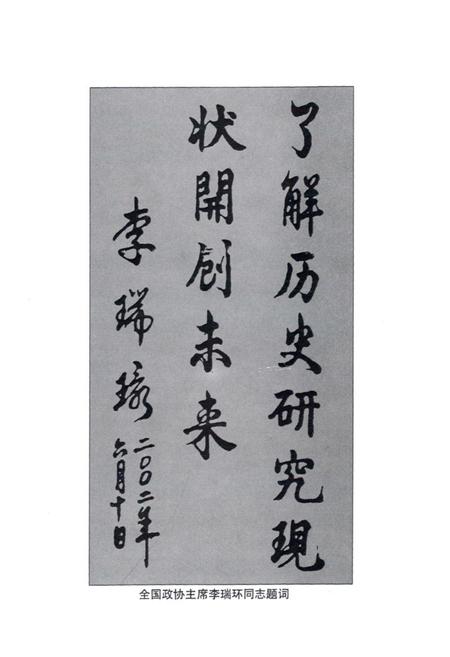 了解历史研究现
状開創未来
李瑞环
二〇〇二年
六月十日
全国政协主席李瑞环同志题词